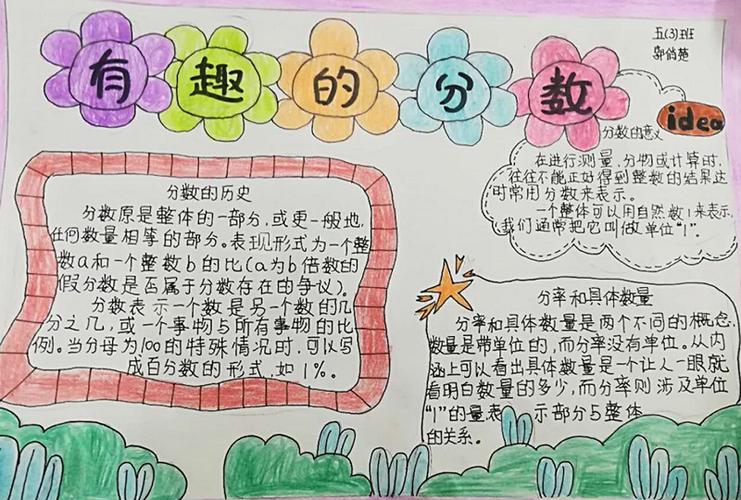 有趣的分数
五(3)班
idea
分数的意义
在进行测量、分物或计算时,
往往不能正好得到整数的结果达
时常用分数来表示。
一个整体可以用自然数1来表示,
我们通常把它叫做单位"1"。
分数的历史
分数原是整体的一部分,或更一般地,
任何数量相等的部分。表现形式为一个整
数a和一个整数b的比(a为b倍数的
假分数是否属于分数存在的争议)。
分数表示一个数是另一个数的几
分之几,或一个事物与所有事物的比
例。当分母为100的特殊情况时,可以写
成百分数的形式,如1%。
分率和具体数量
分率和具体数量是两个不同的概念,
数量是带单位的,而分率没有单位。从内
涵上可以看出具体数量是一个让人一眼就
看明白数量的多少,而分率则涉及单位
"1"的量表 示部分与整体
的关系。